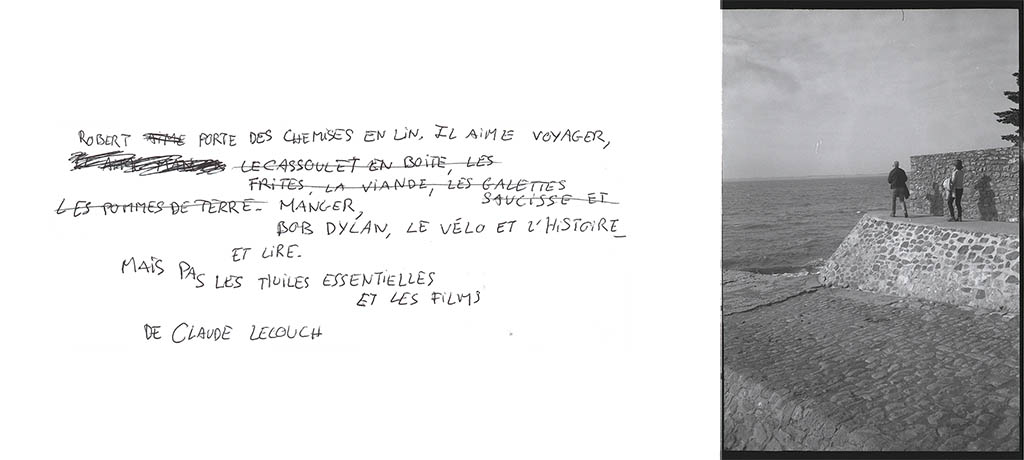 ROBERT AIME PORTE DES CHEMISES EN LIN. IL AIME VOYAGER,
LE CASSOULET EN BOITE, LES
FRITES, LA VIANDE, LES GALETTES
SAUCISSE ET
LES POMMES DE TERRE. MANGER,
BOB DYLAN, LE VÉLO ET L'HISTOIRE
ET LIRE.
MAIS PAS LES HUILES ESSENTIELLES
ET LES FILMS
DE CLAUDE LELOUCH